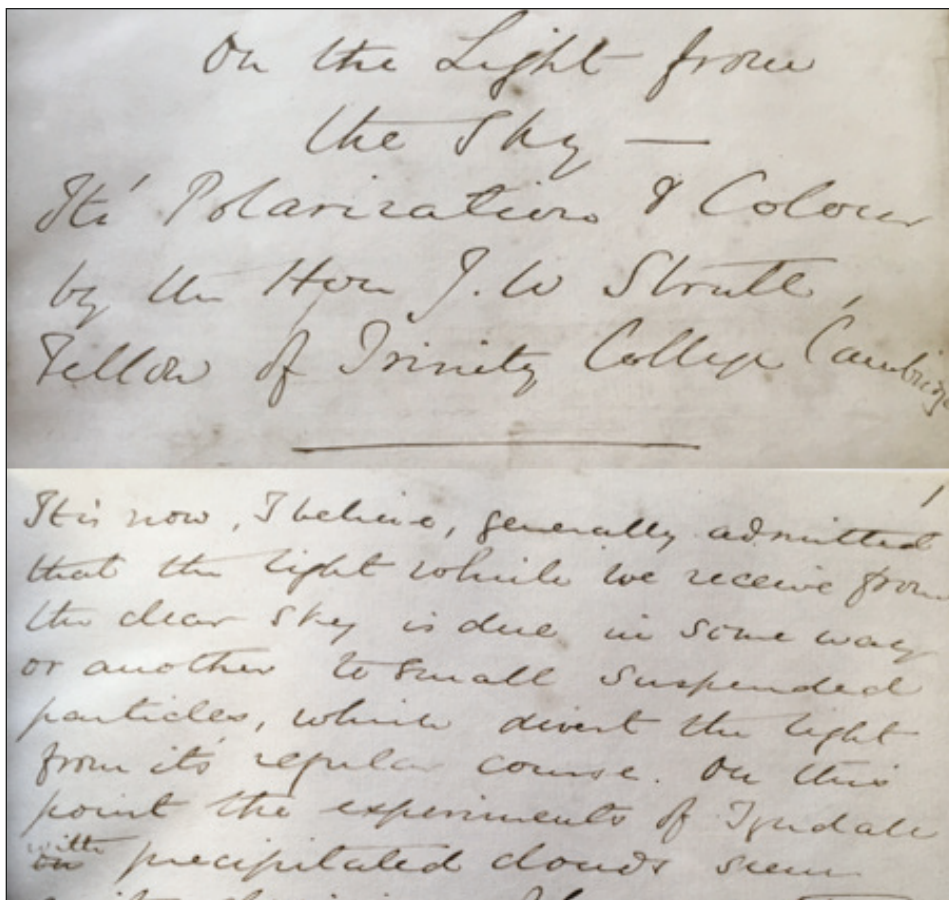 On the Light from
the Sky —
It's Polarization & Colour
by the Hon J. W Strutt,
Fellow of Trinity College Cambridge
1
It is now, I believe, generally admitted
that the light which we receive from
the clear sky is due in some way
or another to small suspended
particles, which divert the light
from it's regular course. On this
point the experiments of Tyndall
with
precipitated clouds seem